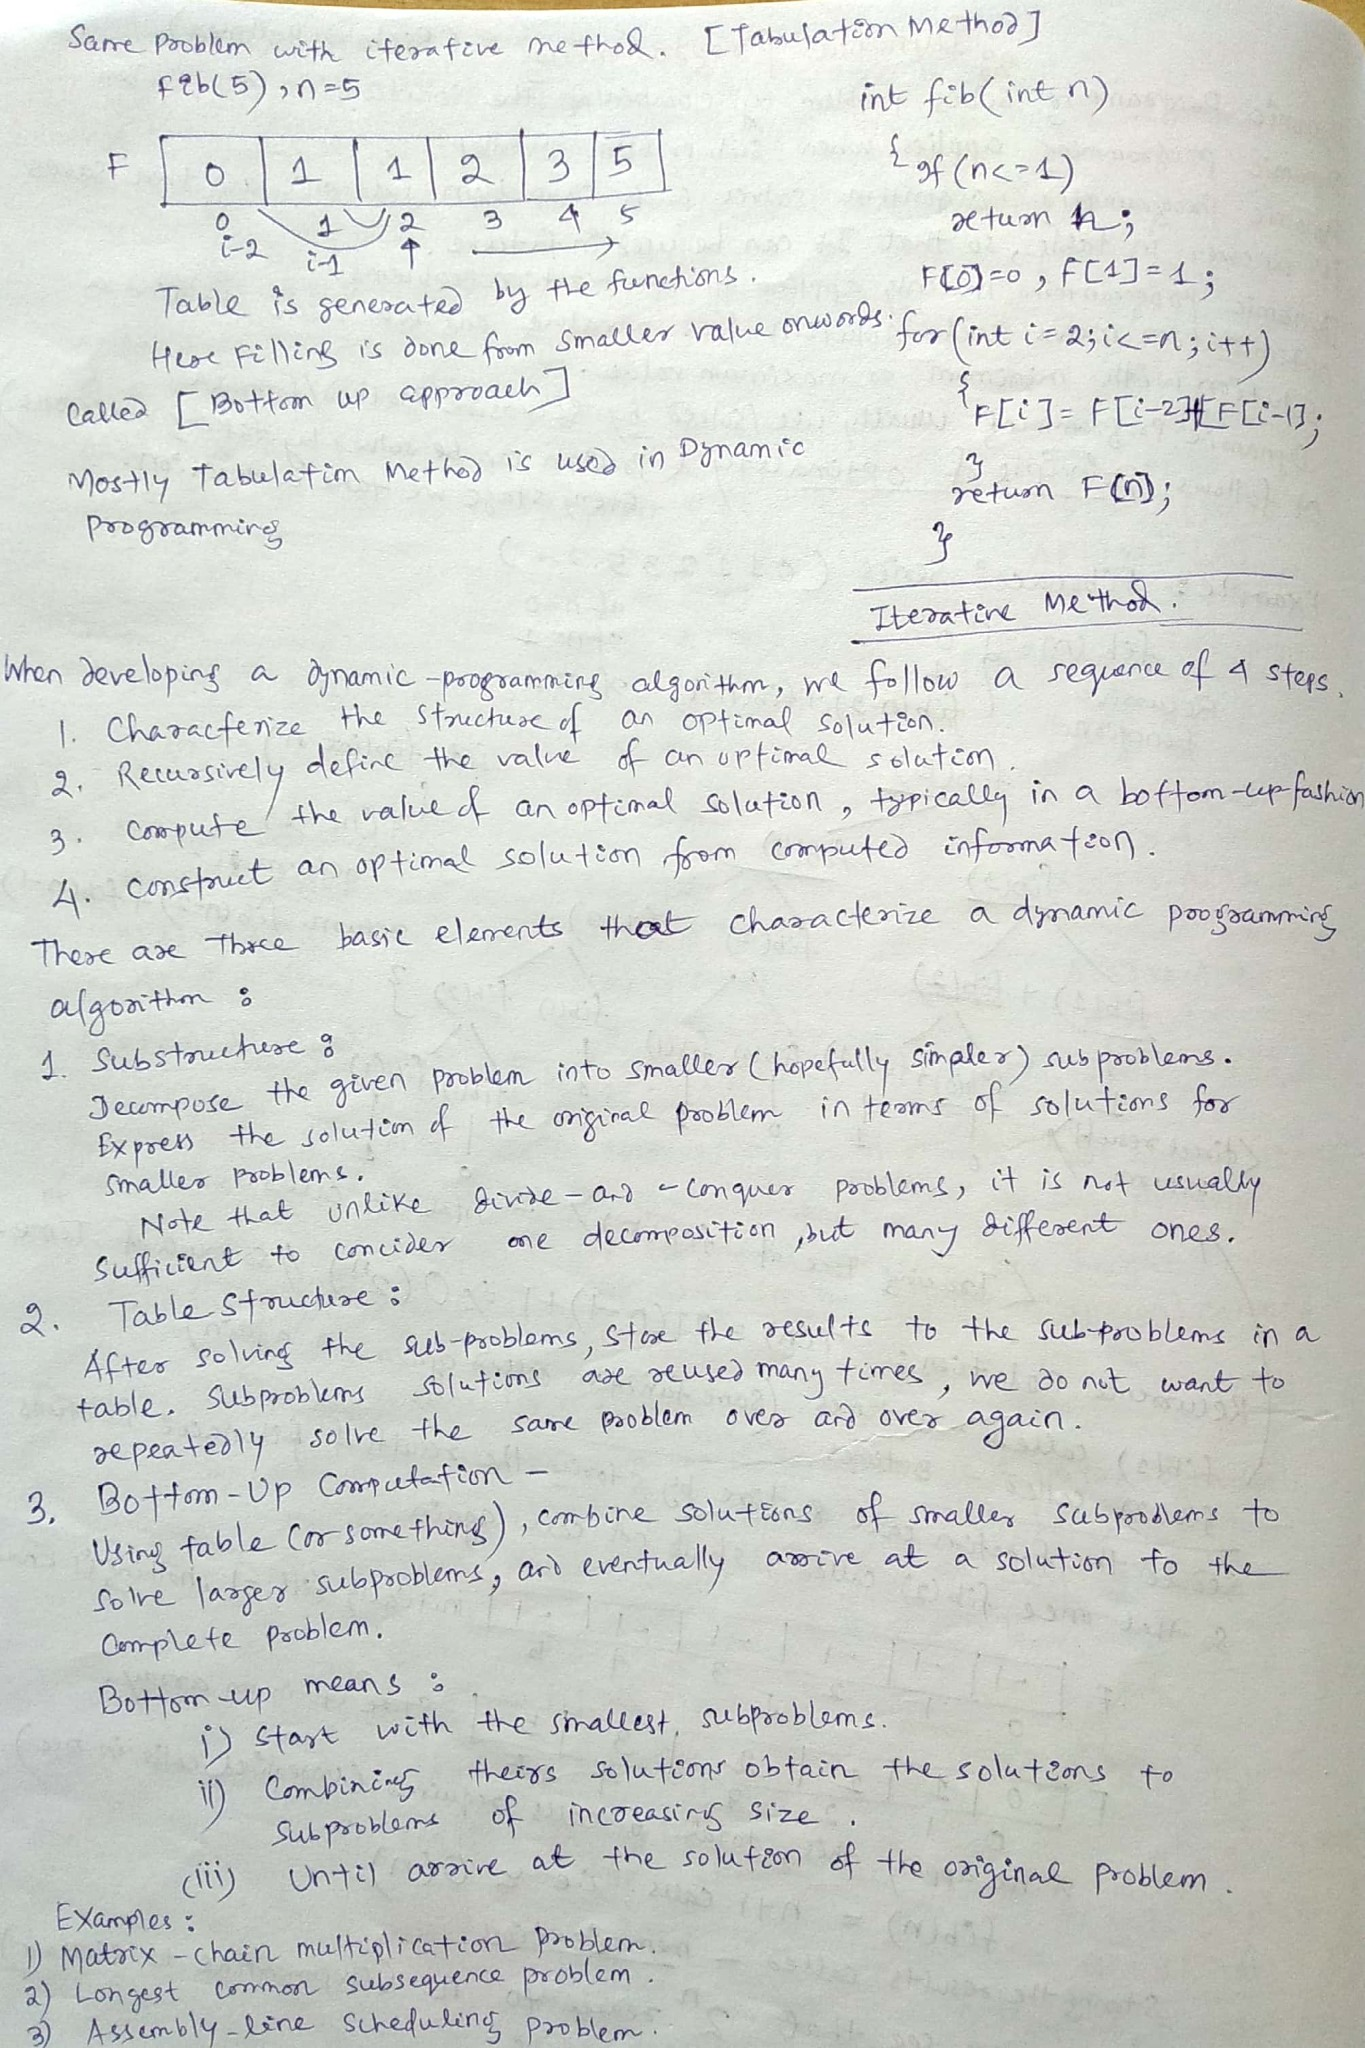 Same Problem with iterative method. [Tabulation Method]
fib(5), n=5
F 0 1 1 2 3 5
0 1 2 3 4 5
i-2 i-1
Table is generated by the functions.
Here Filling is done from smaller value onwords.
Called [Bottom up approach]
Mostly Tabulation Method is used in Dynamic
Programming
int fib(int n)
{ if (n<=1)
return n;
F[0]=0, F[1]=1;
for(int i=2; i<=n; i++)
{
F[i]= F[i-2]+F[i-1];
}
return F[n];
}
Iterative Method.
When developing a dynamic-programming algorithm, we follow a sequence of 4 steps.
1. Characterize the structure of an optimal solution.
2. Recursively define the value of an optimal solution.
3. compute the value of an optimal solution, typically in a bottom-up-fashion
4. construct an optimal solution from computed information.
There are Three basic elements that characterize a dynamic programming
algorithm :
1. Substructure :
Decompose the given problem into smaller (hopefully simpler) subproblems.
Express the solution of the original problem in terms of solutions for
smaller problems.
Note that unlike divide-and-conquer problems, it is not usually
sufficient to concider one decomposition, but many different ones.
2. Table Structure :
After solving the sub-problems, store the results to the sub-problems in a
table. Subproblems solutions are reused many times, we do not want to
repeatedly solve the same problem over and over again.
3. Bottom-Up Computation -
Using table (or something), combine solutions of smaller subproblems to
solve larger subproblems, and eventually arrive at a solution to the
Complete problem.
Bottom-up means :
i) Start with the smallest subproblems.
ii) Combining theirs solutions obtain the solutions to
subproblems of increasing size.
(iii) Until arrive at the solution of the original problem.
Examples :
1) Matrix-chain multiplication problem.
2) Longest common subsequence problem.
3) Assembly-line scheduling problem.